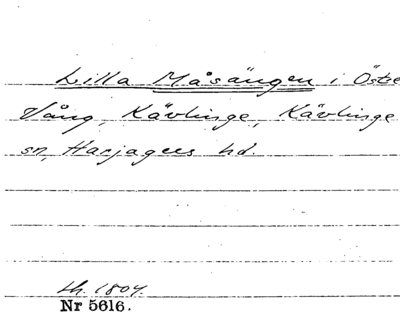 Lilla Måsängen i Östre
Vång, Kävlinge, Kävlinge
sn, Harjagers hd.
lh. 1804.
Nr 5616.